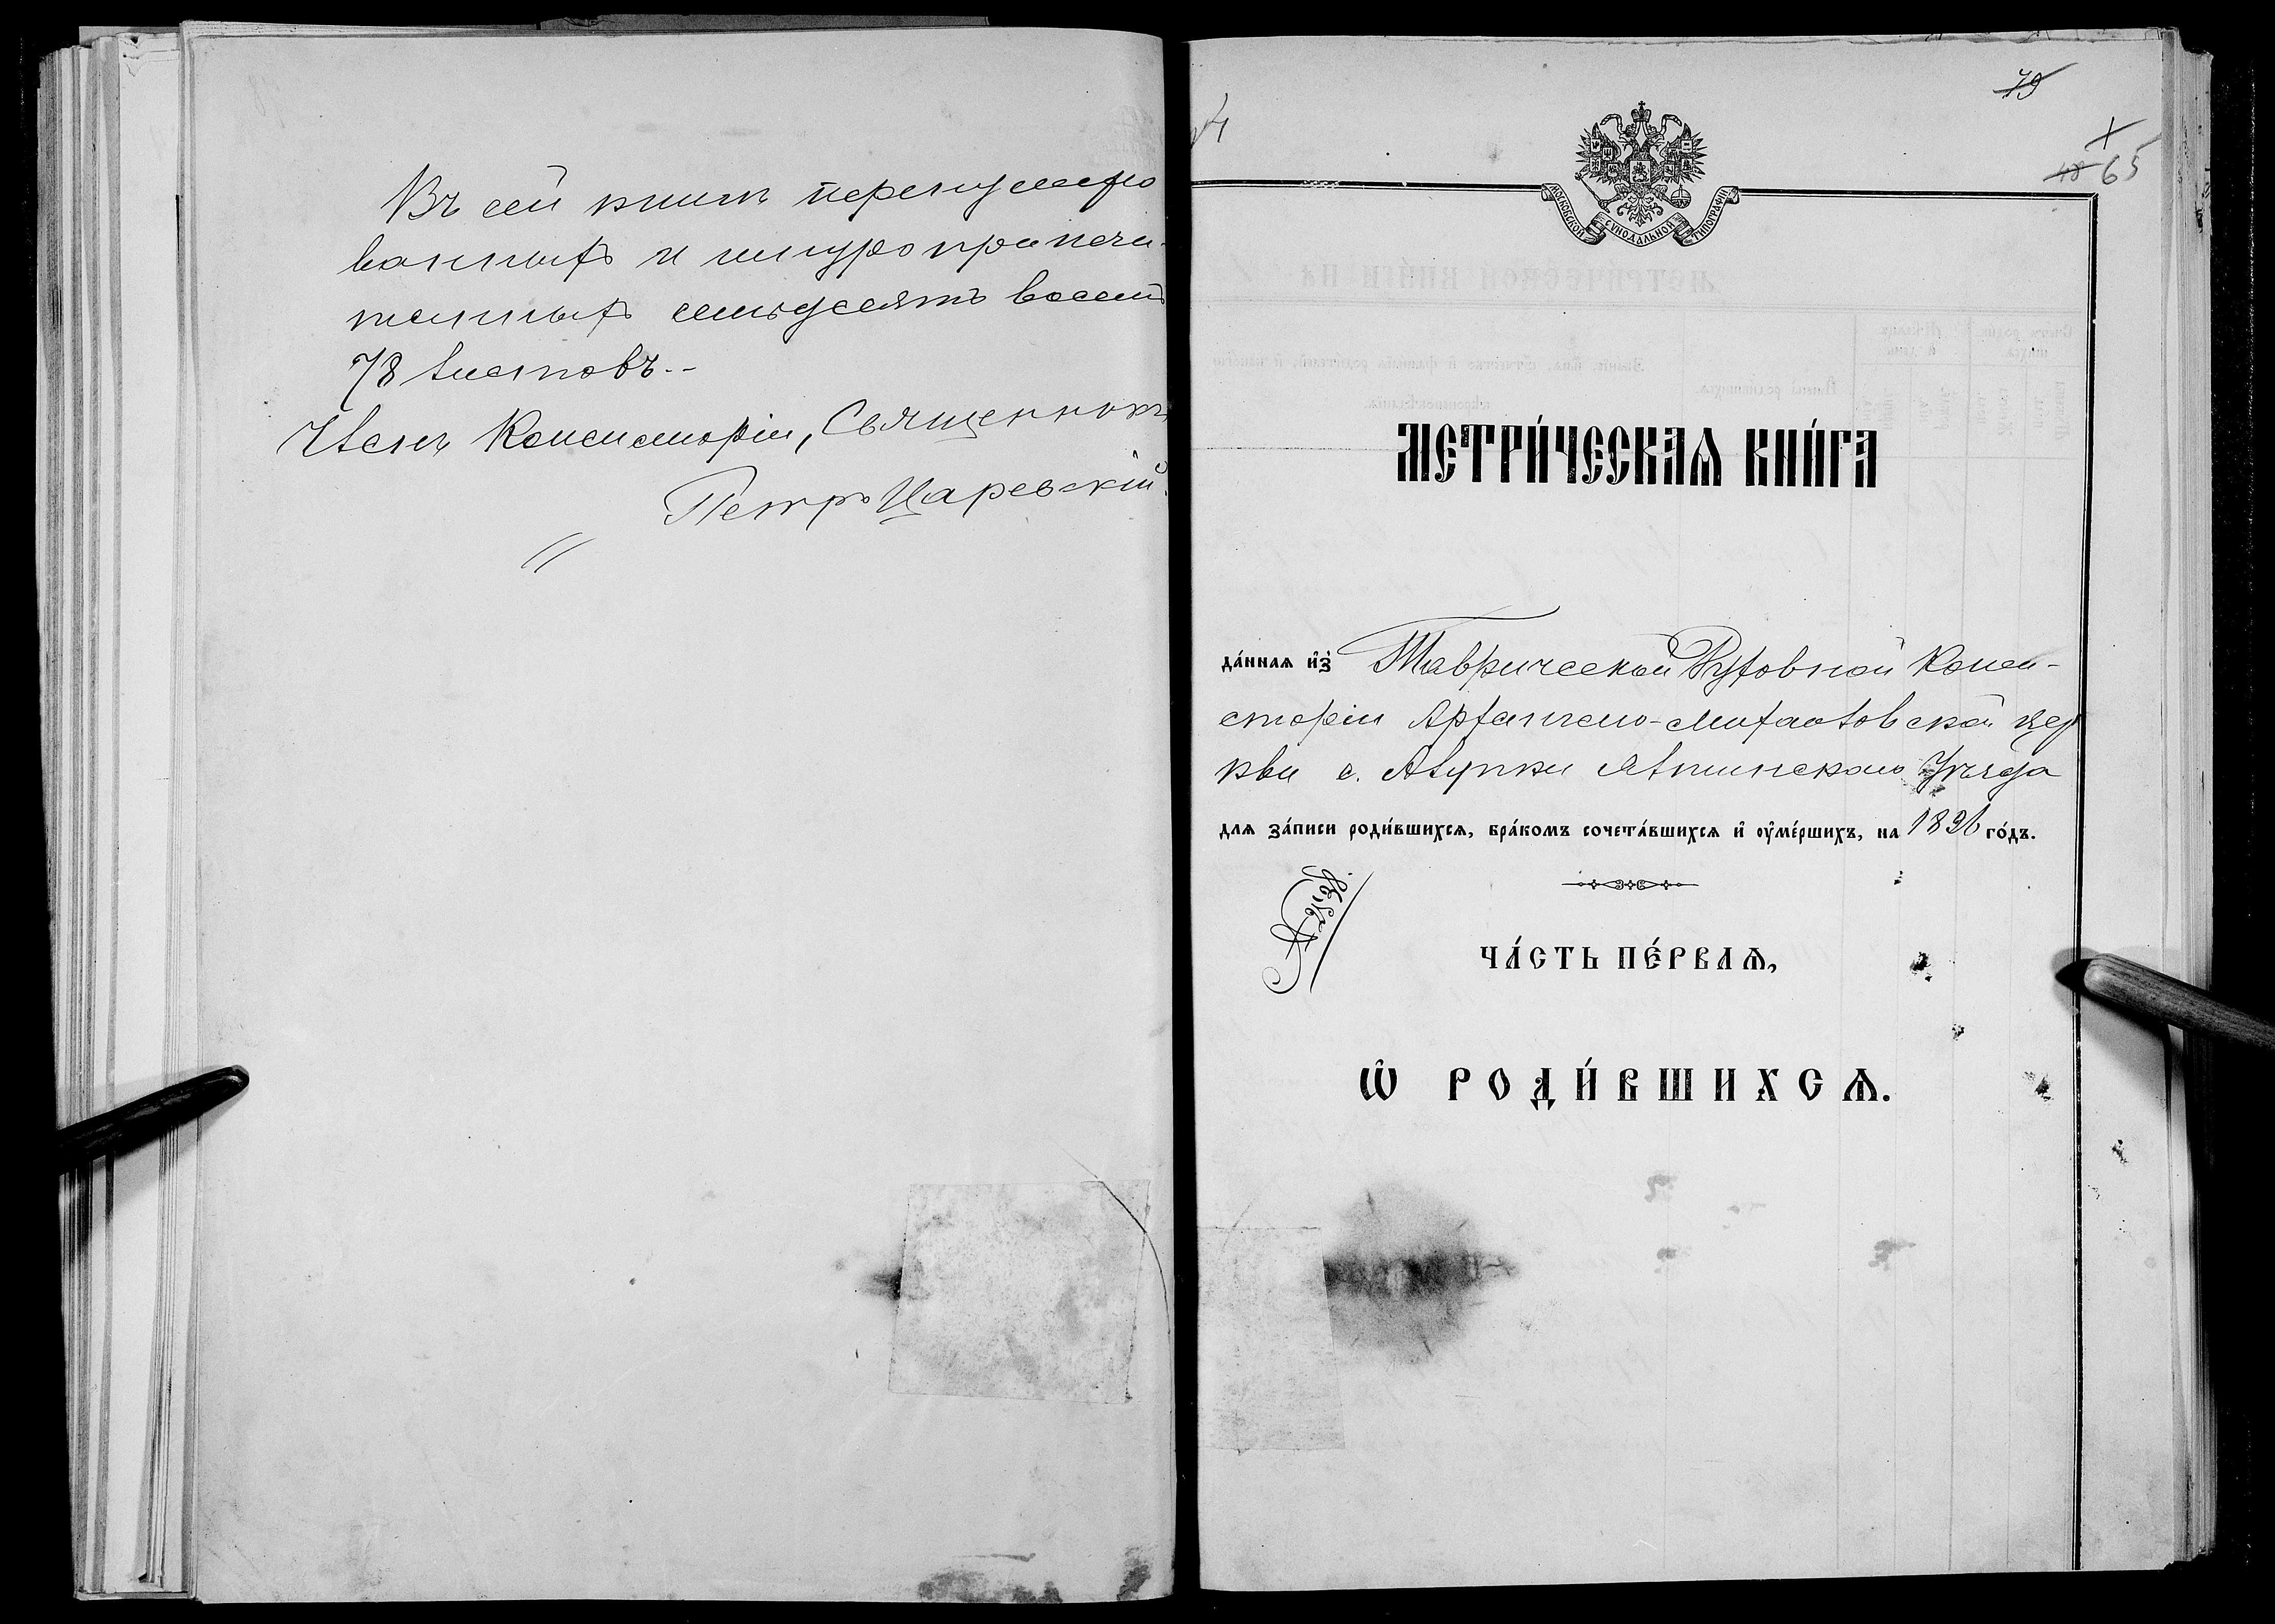 Въ сей книгѣ перенумеро
ванныхъ и шнуроприпеча-
танныхъ семьдесятъ восемь
78 листовъ.-
Членъ Консисторіи, Священникъ
Петръ Царевскій.
79
48 65
МОСКОВСКОЙ СѴНОДАЛЬНОЙ ТИПОГРАФІИ
МЕТРИ́ЧЕСКАѦ КНИ́ГА
да́ннаѧ и҆з̾ Таврической Духовной Конси-
сторіи Архангело-Михайловской цер
кви с. Алупки Ялтинскаго Уѣзда
длѧ за́писи роди́вшихсѧ, бра́комъ сочета́вшихсѧ и҆ ᲂу҆ме́ршихъ, на 1896 го́дъ.
ЧА́СТЬ ПЕ́РВАѦ,
Ѡ҆ РОДИ́ВШИХСѦ.